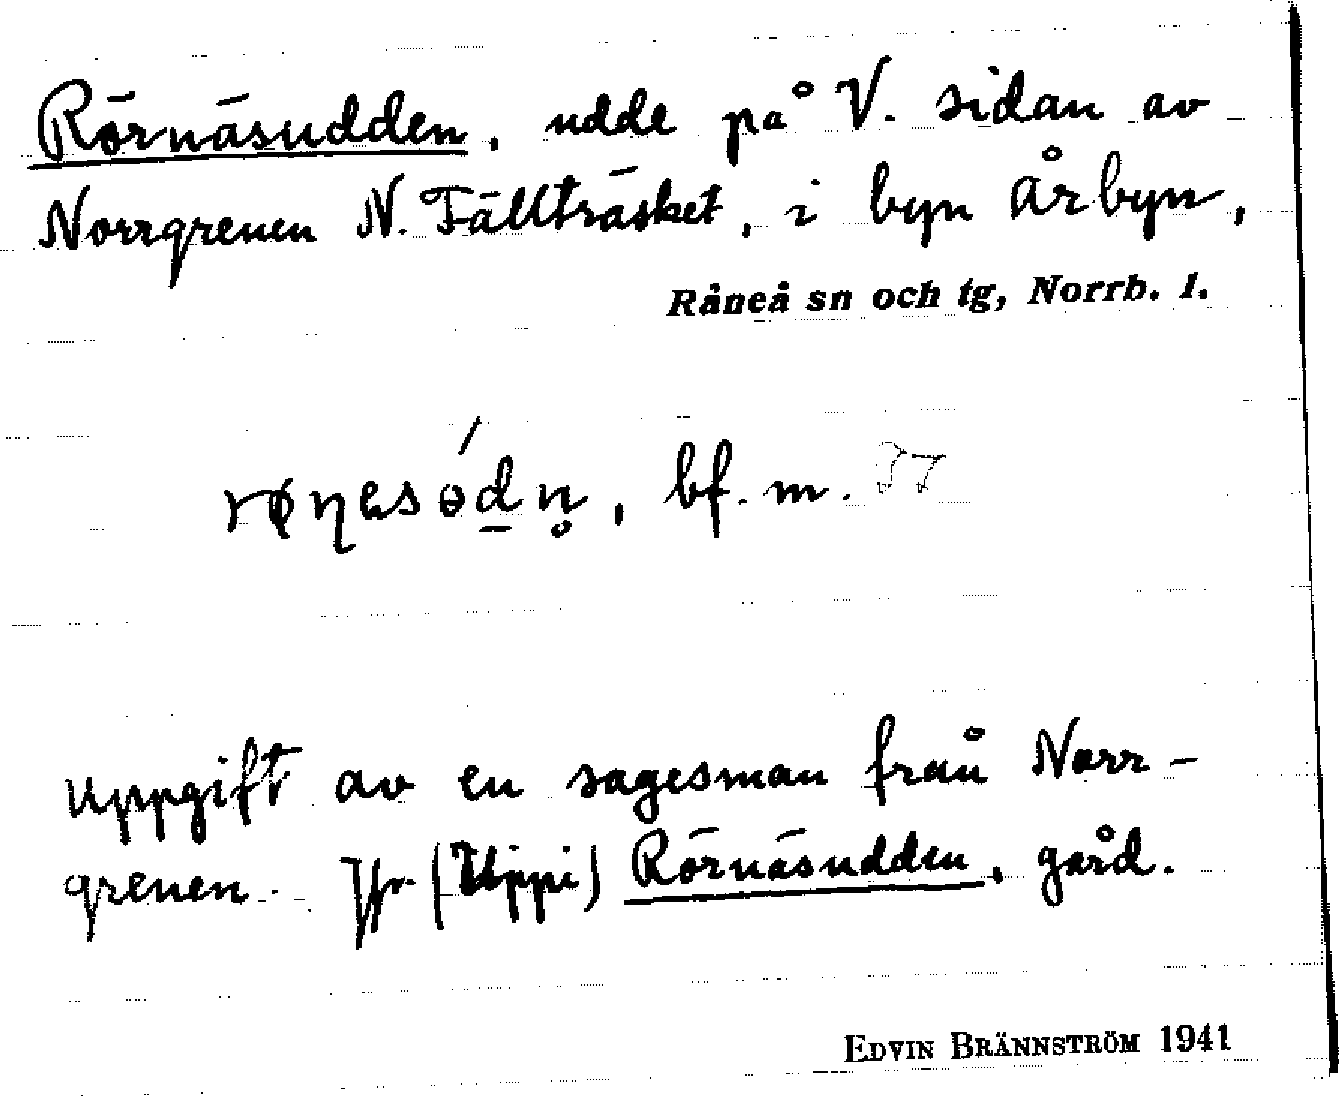 Rörnäsudden, udde på V. sidan av
Norrgrenen N. Fällträsket, i byn Årbyn,
Råneå sn och tg, Norrb. l.
bf. m.
Uppgift av en sagesman från Norr-
grenen. Jfr (Uppi) Rörnäsudden, gård.
EDVIN BRÄNNSTRÖM 1941